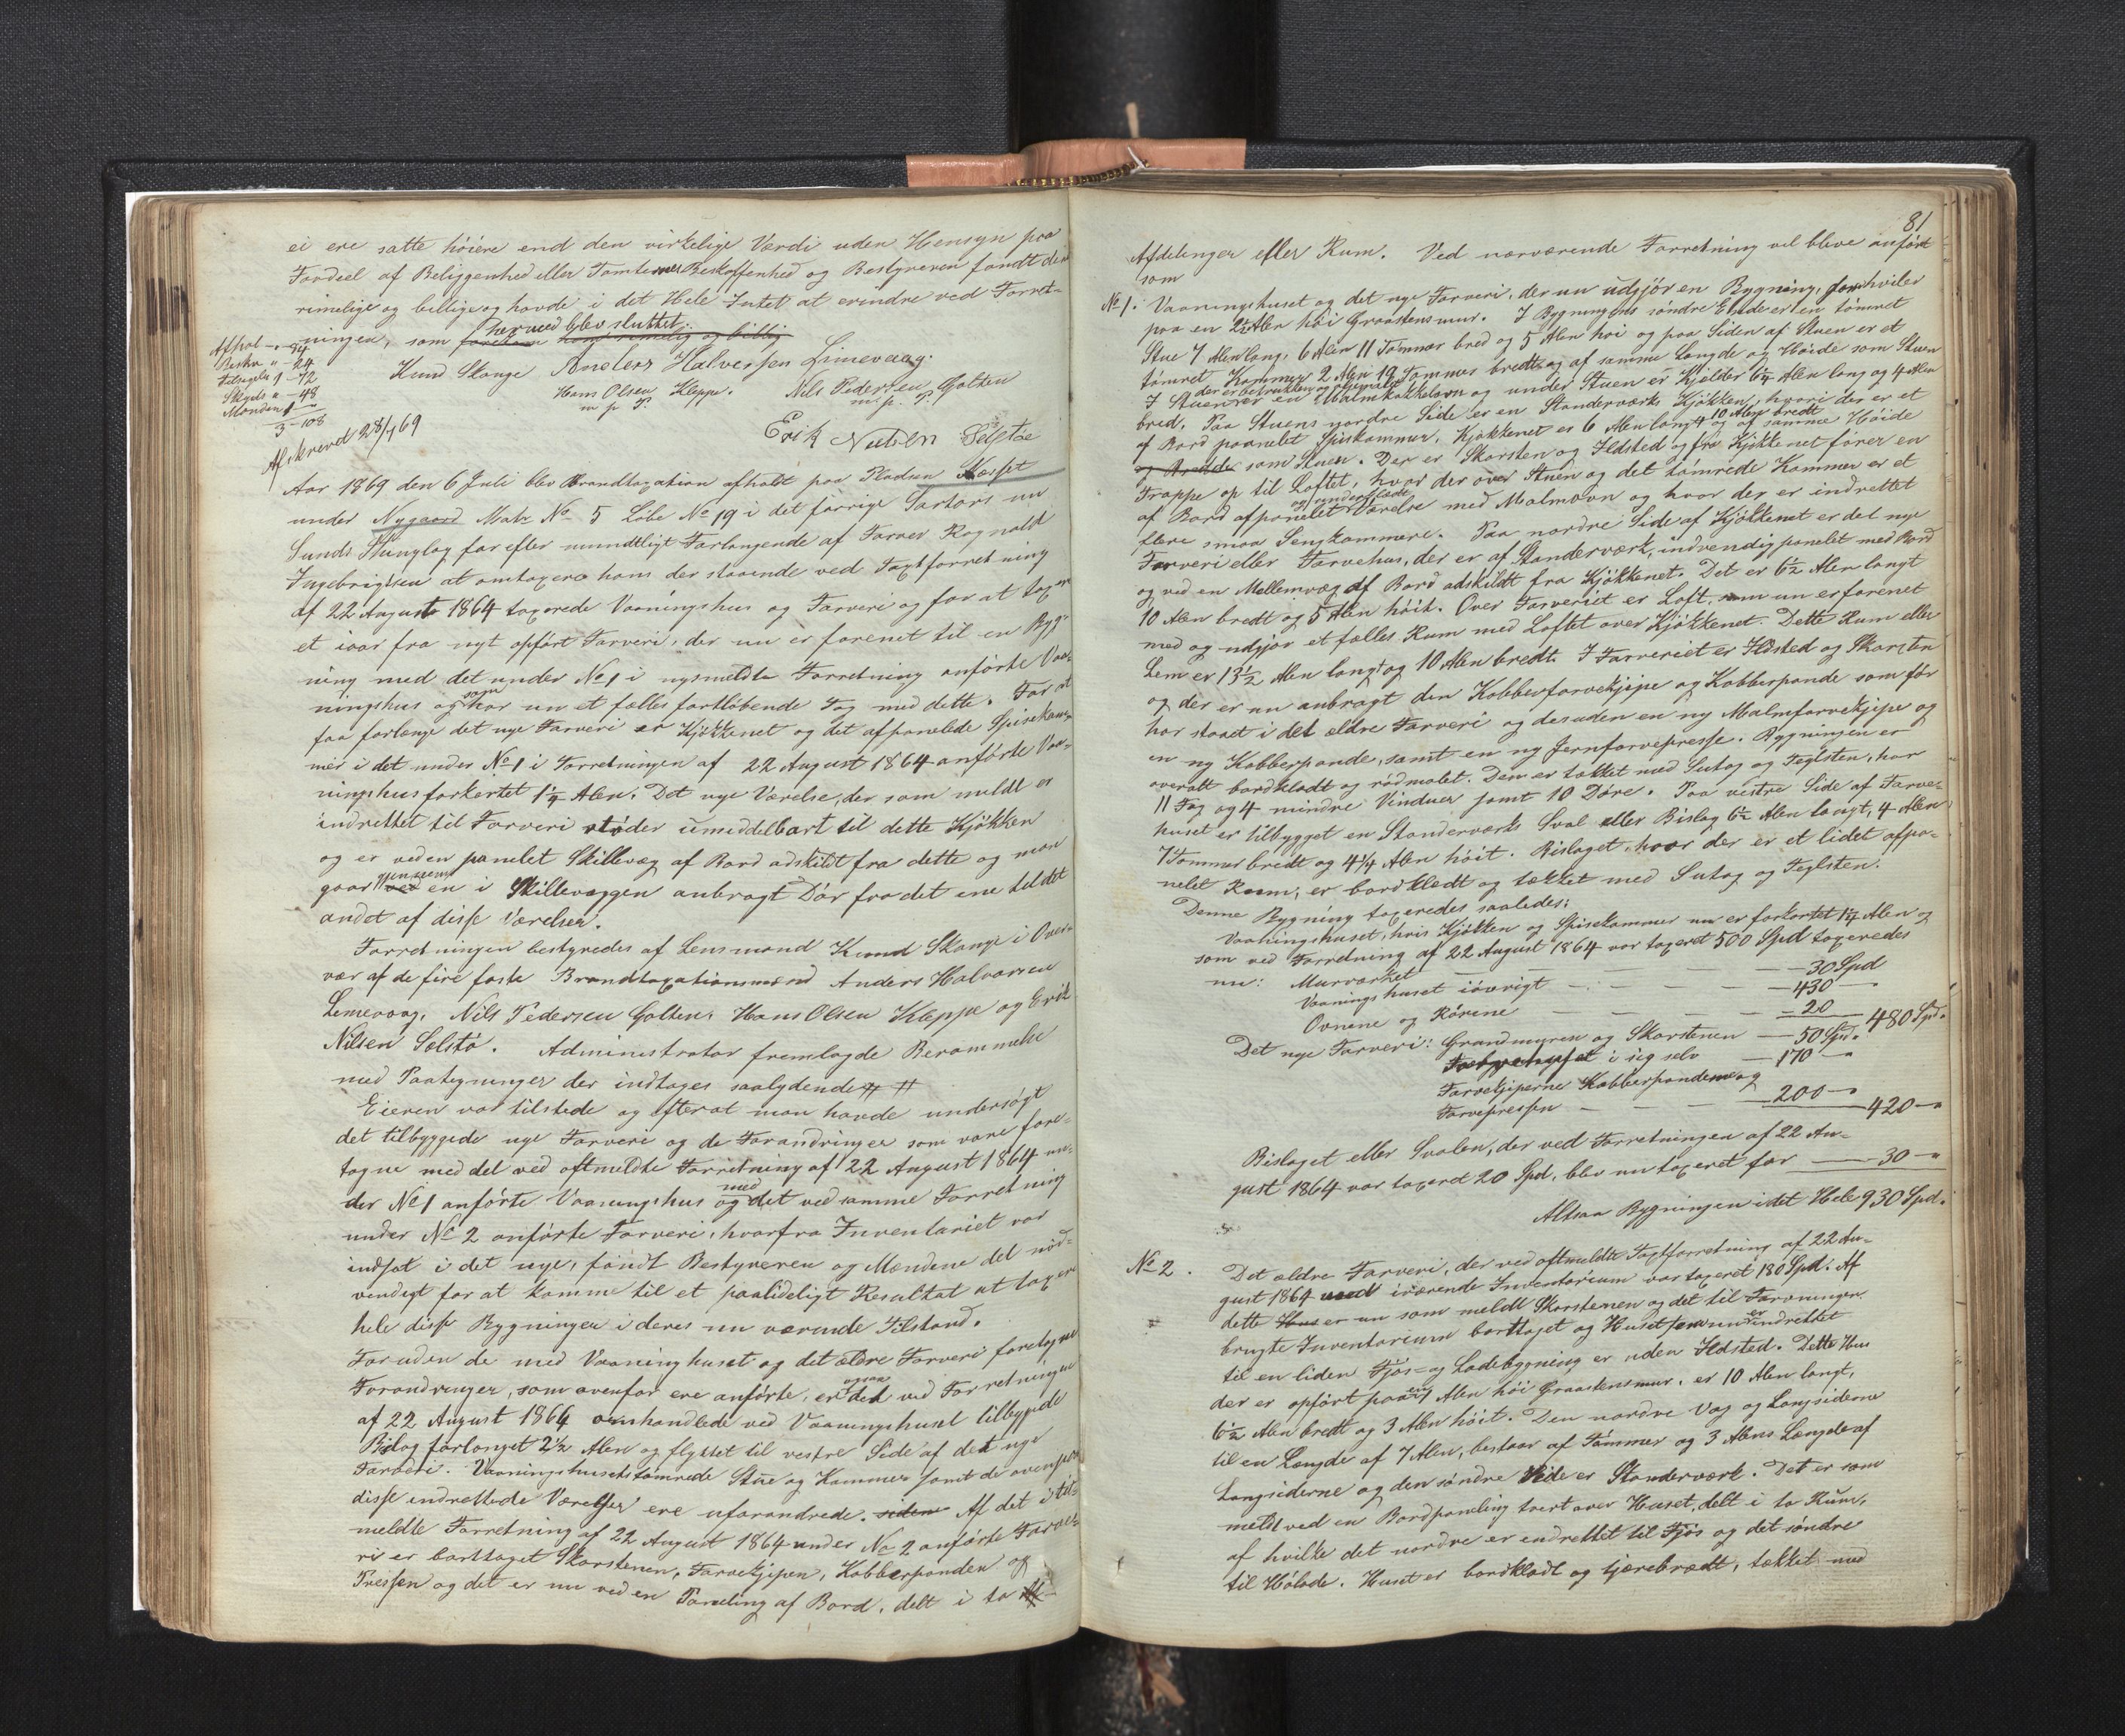 ei ere satte höiere end den virkelige Værdi uden Hensyn paa
Fordeel af Beliggenhed eller Tomternes Beskaffenhed og Bestyreren fandt den
rimelige og billige og havde i det Hele Intet at erindre ved Forret-
ningen, som hermed blev sluttet.
Knud Skange Anders Halversen Limevaag.
Hans Olsen Kleppe. Nils Pedersen Golten
m. p. P. m. p. P.
Erik Nielsen Selstøe
Afhol - " - 94
Beskr " - 24
1 - 72
Skyds " - 48
Mænden 1 - "
3 - 108
Afskrevet 28/7 69
Aar 1869 den 6 Juli blev Brandtaxation afholdt paa Pladsen Næsset
under Nygaard Matr No 5 Löbe No 19 i det forrige Sartors nu
Sunds Thinglag for efter mundtligt Forlangende af Farver Rognald
Ingebrigtsen at omtaxere hans der staaende ved Taxtforretning
af 22 August 1864 taxerede Vaaningshus og Farveri og for at taxere
et iaar fra nyt opfört Farveri, der nu er forenet til en Byg-
ning med det under No 1 i nysmeldte Forretning anförte Vaa-
ningshus og som har nu et fælles fortlöbende Tag med dette. For at
faa forlænge det nye Farveri er Kjökkenet og det afpanelede Spisekam-
mer i det under No 1 i Forretningen af 22 August 1864 anförte Vaa-
ningshus forkortet 1 1/4 Alen. Det nye Værelse, der som meldt er
indrettet til Farveri stöder umiddelbart til dette Kjökken
og er ved en panelet Skillevæg af Bord adskildt fra dette og man
gaar gjennem en i Skillevæggen anbragt Dör fra det ene til det
andet af disse Værelser.
Forretningen bestyredes af Lensmand Knud Skange i Over-
vær af de fire faste Brandtaxationsmænd Anders Halvorsen
Lemevaag, Nils Pedersen Golten, Hans Olsen Kleppe og Erik
Nilsen Selstö. Administrator fremlagde Berammelse
med Paategninger der indtages saalydende # #
Eieren var tilstede og efterat man havde undersögt
det tilbyggede nye Farveri og de Forandringer som vare fore-
tagne med det ved oftmeldte Forretning af 22 August 1864 un-
der No 1 anförte Vaaningshus og med det ved samme Forretning
under No 2 anförte Farveri, hvorfra Inventariet var
indsat i det nye, fandt Bestyreren og Mændene det nöd-
vendigt for at komme til et paalideligt Resultat at taxere
hele disse Bygninger i deres nu værende Tilstand.
Foruden de med Vaaninghuset og det ældre Farveri foretagne
Forandringer, som ovenfor ere anförte, er ogsaa det ved Forretningen
af 22 August 1864 omhandlede ved Vaaningshuset tilbyggede
Bislag forlænget 2 1/2 Alen og flyttet til vestre Side af det nye
Farveri. Vaaningshusets tömrede Stue og Kammer samt de ovenpaa
disse indrettede Værelser ere uforandrede. siden Af det i til-
meldte Forretning af 22 August 1864 under No 2 anförte Farve-
ri er borttaget Skorstenen, Farvekjipen, Kobberpanden og
Pressen og det er nu ved en Paneling af Bord, delt i to
81
Afdelinger eller Rum. Ved nærværende Forretning vil blive anfört
som
No 1. Vaaningshuset og det nye Farveri, der nu udgjör en Bygning, hviler
paa en 2 1/2 Alen höi Graastensmur. I Bygningens söndre Ende er en tömret
Stue 7 Alen lang, 6 Alen 11 Tommer bred og 5 Alen höi og paa Siden af Stuen er et
tömret Kammer 2 Alen 19 Tommer bredt og af samme Længde og Höide som Stuen
I Stuen der er betrukken og er en Malmkakkelovn og under Stuen er Kjelder 6 1/4 Alen lang og 4 Alen
bred. Paa Stuens nordre Side er en Standerværks Kjökken, hvori der er et
af Bord paanelet Spiskammer. Kjökkenet er 6 Alen langt 10 Alen bredt og af samme Höide
som Stuen. Der er Skorsten og Ildsted og fra Kjökkenet förer en
Trappe op til Loftet, hvor der over Stuen og det tömrede Kammer er et
af Bord afpanelet Værelse med Malmovn og hvor der er indrettet
flere smaa Sengkammere. Paa nordre Side af Kjökkenet er det nye
Farveri eller Farvehus, der er af Standerværk, indvendig panelet med Bord
og ved en Mellemvæg af Bord adskildt fra Kjökkenet. Det er 6 1/2 Alen langt
10 Alen bredt og 5 Alen höit. Over Farveriet er Loft, som nu er forenet
med og udgjör et fælles Rum med Loftet over Kjökkenet. Dette Rum eller
Lem er 13 1/2 Alen langt og 10 Alen bredt. I Farveriet er Ildsted og Skorsten
og der er nu anbragt den Kobberfarvekjipe og Kobberpande som för
har staaet i det ældre Farveri og desuden en ny Malmfarvekjipe og
en ny Kobberpande, samt en ny Jernfarvepresse. Bygningen er
overalt bordklædt og rödmalet. Den er tækket med Sutag og Teglsten, har
11 Fag og 4 mindre Vinduer samt 10 Döre. Paa vestre Side af Farve-
huset er tilbygget en Standerværks Sval eller Bislag 6 1/2 Alen langt, 4 Alen
7 Tommer bredt og 4 1/4 Alen höit. Bislaget, hvor der er et lidet afpa-
nelet Rum, er bordklædt og tækket med Sutag og Teglsten.
Denne Bygning taxeredes saaledes:
Vaaningshuset, hvis Kjökken og Spisekammer nu er forkortet 1 1/4 Alen og
som ved Forretning af 22 August 1864 var taxeret 500 Spd taxeredes
nu: Murværket — — — — 30 Spd
Vaaningshuset iövrigt — — — — 430 —
Ovnene og Rörene — — — — 20 480 Spd.
Det nye Farveri: Grundmuren og Skorstenen — 50 Spd.
i sig selv — 170 — "
Farvekjiperne Kobberpanderne og
Farvepressen — — — 200 — " 420 — "
Bislaget eller Svalen, der ved Forretningen af 22 Au-
gust 1864 var taxeret 20 Spd, blev nu taxeret for — 30 — "
Altsaa Bygningen i det Hele 930 Spd.
No 2. Det ældre Farveri, der ved oftmeldte Taxtforretning af 22 Au-
gust 1864 med iværende Inventarium var taxeret 180 Spd. Af
dette Hus er nu som meldt Skorstenen og det til Farvningen
brugte Inventarium borttaget og Huset som nu er indrettet
til en liden Fjös- og Ladebygning er uden Ildsted. Dette Hus
der er opfört paa en 1 Alen höi Graastensmur, er 10 Alen langt,
6 1/2 Alen bredt og 3 Alen höit. Den nordre Væg og Langsiderne
til en Længde af 7 Alen, bestaar af Tömmer og 3 Alens Længde af
Langsiderne og den söndre Side er Standerværk. Det er som
meldt ved en Bordpaneling tvert over Huset, delt i to Rum,
af hvilke det nordre er indrettet til Fjös og det söndre
til Hölade. Huset er bordklædt og tjærebrædt, tækket med